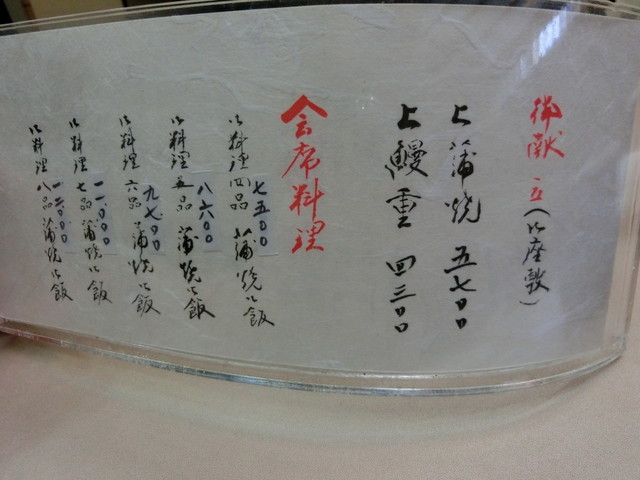 御献立(御座敷)
上蒲焼 五七〇〇
上鰻重 四三〇〇
会席料理
御料理四品 蒲焼御飯
七五〇〇
御料理五品 蒲焼御飯
八六〇〇
御料理六品 蒲焼御飯
九七〇〇
御料理七品 蒲焼御飯
一一〇〇〇
御料理八品 蒲焼御飯
一二〇〇〇